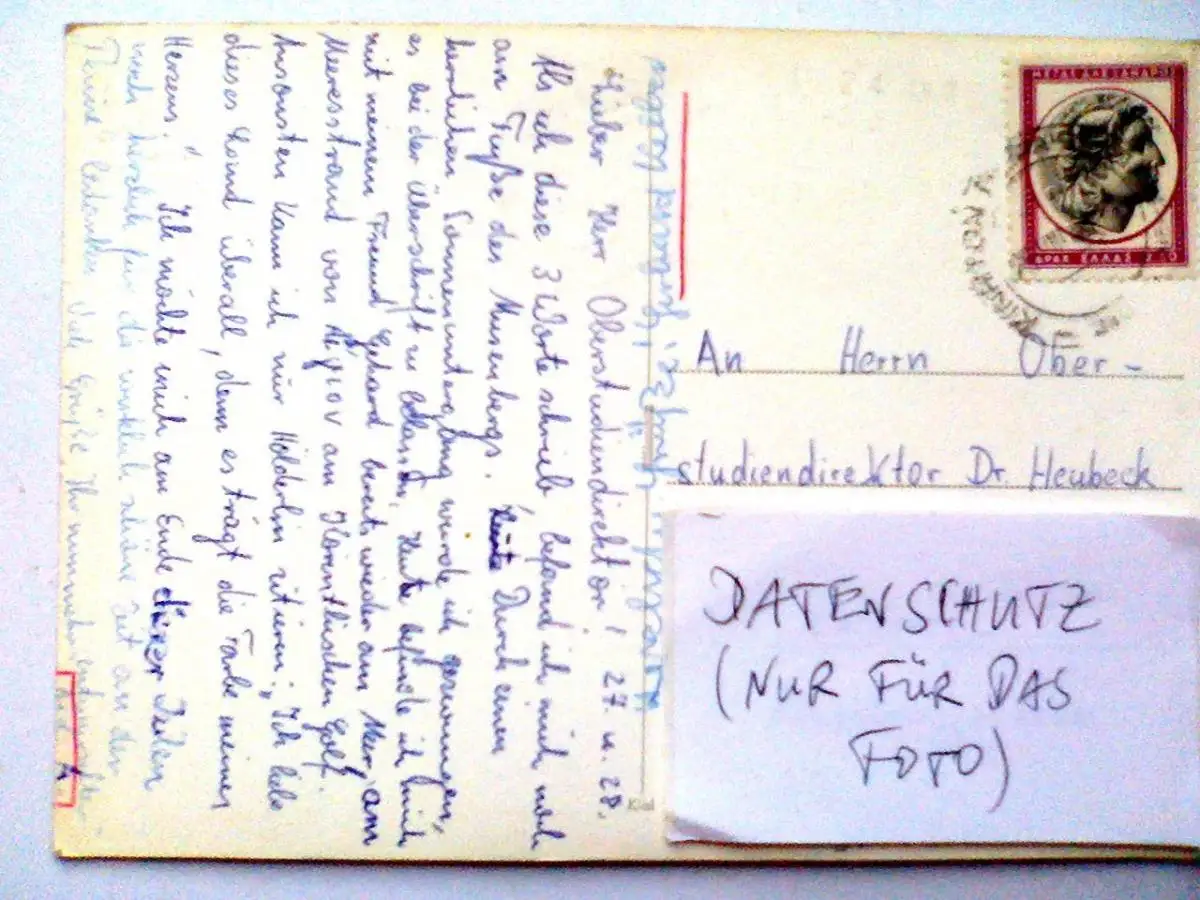 Lieber Herr Oberstudiendirektor! 27. u. 28.
Als ich diese 3 Worte schrieb, befand ich mich noch
am Fuße des Musenbergs. Durch einen
herrlichen Sonnenuntergang wurde ich gezwungen,
es bei der Überschrift zu belassen. Heute befinde ich mich
mit meinem Freund Gerhard bereits wieder am Meer, am
Meeresstrand von am Korinthischen Golf.
Ansonsten kann ich nur Hölderlin zitieren: „Ich liebe
dieses Land überall, denn es trägt die Farbe meines
Herzens." Ich möchte mich am Ende dieser Zeilen
noch herzlich für die wirklich schöne Zeit an der
bedanken. Viele Grüße Ihr nunmehr
ΜΕΓΑΣ ΑΛΕΞΑΝΔΡΟΣ
ΔΡΑΧ ΕΛΛΑΣ
An Herrn Ober-
studiendirektor Dr. Heubeck
DATENSCHUTZ
(NUR FÜR DAS
FOTO)